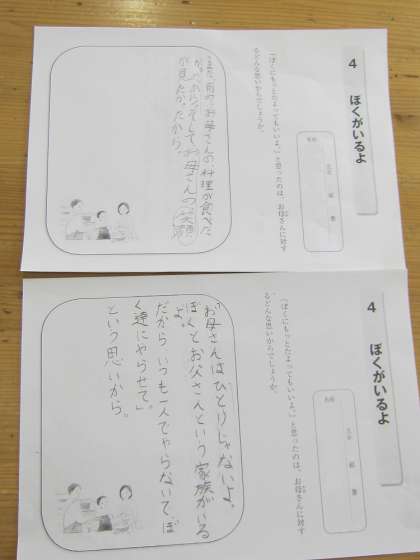 4
ぼくがいるよ
「ぼくにもっとたよってもいいよ。」と思ったのは、お母さんに対す
るどんな思いからでしょうか。
名前
年
組
番
また、前の、お母さんの、料理が食べた
かったから。そして、お母さんの笑顔
が見たか、たから。
4
ぼくがいるよ
「ぼくにもっとたよってもいいよ。」と思ったのは、お母さんに対す
るどんな思いからでしょうか。
名前
年
組
番
「お母さんはひとりじゃないよ。
ぼくとお父さんという家族がいる
よ。
だからいつも一人でやらないで、ぼ
く達にやらせて」
という思いから。